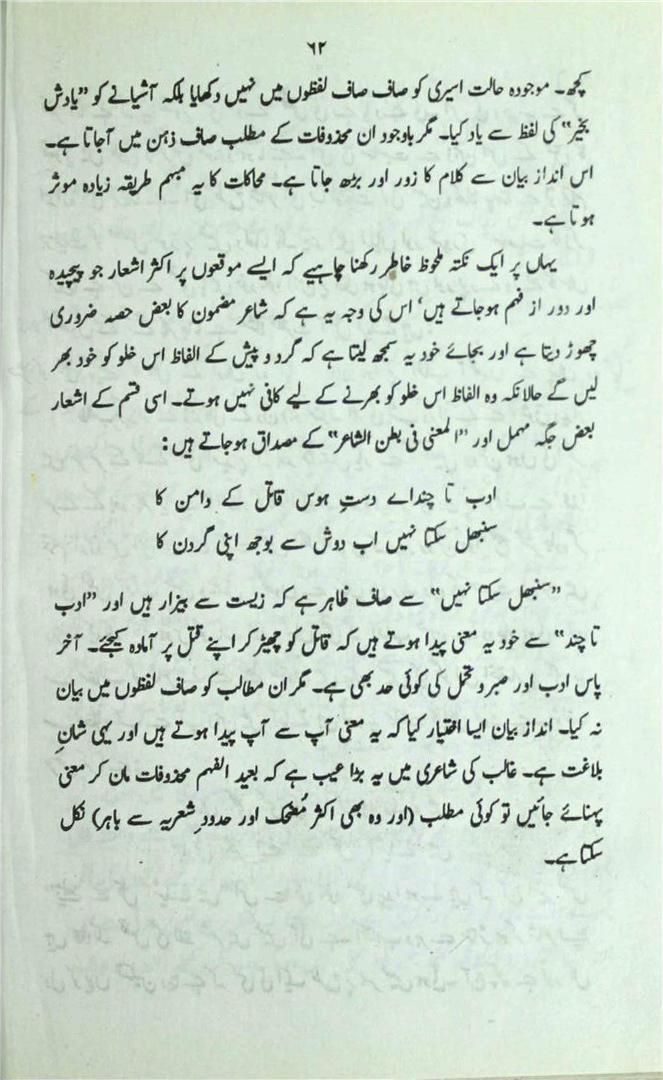 ۶۲
کچھ۔ موجودہ حالت اسیری کو صاف صاف لفظوں میں نہیں دکھایا بلکہ آشیانے کو ”یادش
بخیر“ کی لفظ سے یاد کیا۔ مگر باوجود ان محذوفات کے مطلب صاف ذہن میں آجاتا ہے۔
اس انداز بیان سے کلام کا زور اور بڑھ جاتا ہے۔ محاکات کا یہ مبہم طریقہ زیادہ موثر
ہوتا ہے۔
یہاں پر ایک نکتہ ملحوظ خاطر رکھنا چاہیے کہ ایسے موقعوں پر اکثر اشعار جو پیچیدہ
اور دور از فہم ہوجاتے ہیں، اس کی وجہ یہ ہے کہ شاعر مضمون کا بعض حصہ ضروری
چھوڑ دیتا ہے اور بجائے خود یہ سمجھ لیتا ہے کہ گرد و پیش کے الفاظ اس خلو کو خود بھر
لیں گے حالانکہ وہ الفاظ اس خلو کو بھرنے کے لیے کافی نہیں ہوتے۔ اسی قسم کے اشعار
بعض جگہ مہمل اور ”المعنی فی بطن الشاعر“ کے مصداق ہوجاتے ہیں:
ادب تا چنداے دستِ ہوس قاتل کے دامن کا
سنبھل سکتا نہیں اب دوش سے بوجھ اپنی گردن کا
”سنبھل سکتا نہیں“ سے صاف ظاہر ہے کہ زیست سے بیزار ہیں اور ”ادب
تا چند“ سے خود یہ معنی پیدا ہوتے ہیں کہ قاتل کو چھیڑ کر اپنے قتل پر آمادہ کیجئے۔ آخر
پاس ادب اور صبر و تحمل کی کوئی حد بھی ہے۔ مگر ان مطالب کو صاف لفظوں میں بیان
نہ کیا۔ انداز بیان ایسا اختیار کیا کہ یہ معنی آپ سے آپ پیدا ہوتے ہیں اور یہی شانِ
بلاغت ہے۔ غالب کی شاعری میں یہ بڑا عیب ہے کہ بعید الفہم محذوفات مان کر معنی
پہنائے جائیں تو کوئی مطلب (اور وہ بھی اکثر مُضحک اور حدودِ شعریہ سے باہر) نکل
سکتا ہے۔